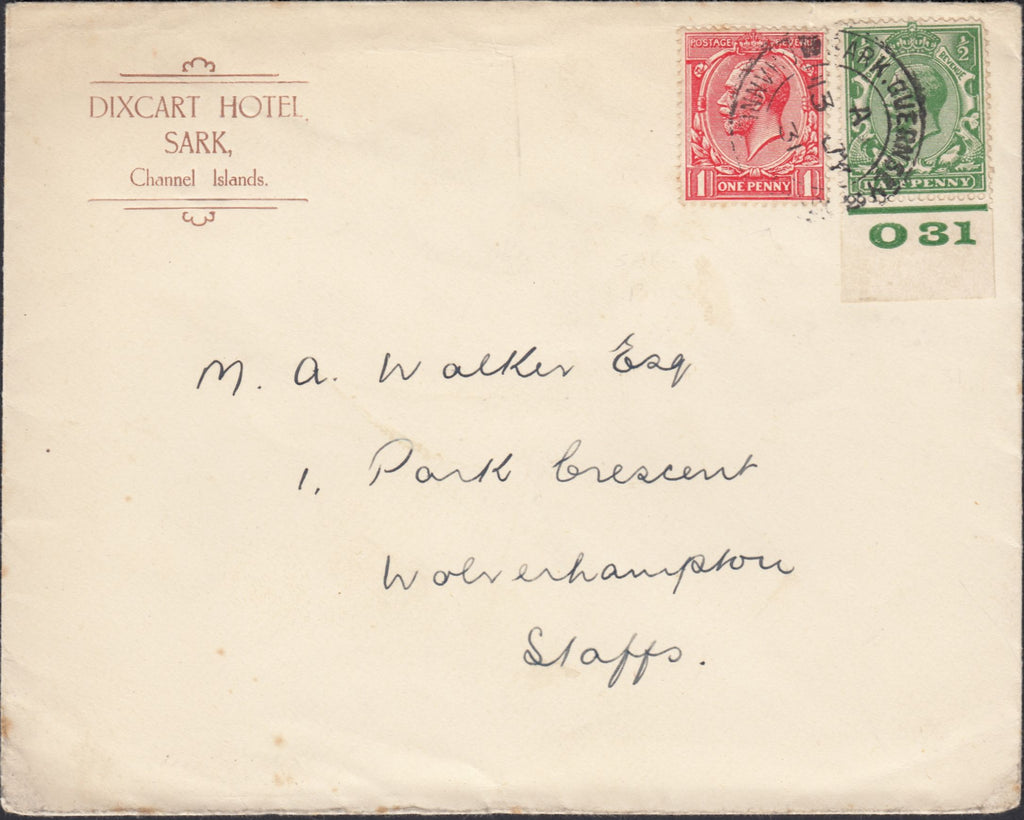 DIXCART HOTEL
SARK,
Channel Islands.
POSTAGE REVENUE
1 ONE PENNY 1
½ REVENUE
PENNY
SARK. GUERNSEY
13
A
31
O 31
M. A. Walker Esq
1. Park Crescent
Wolverhampton
Staffs.